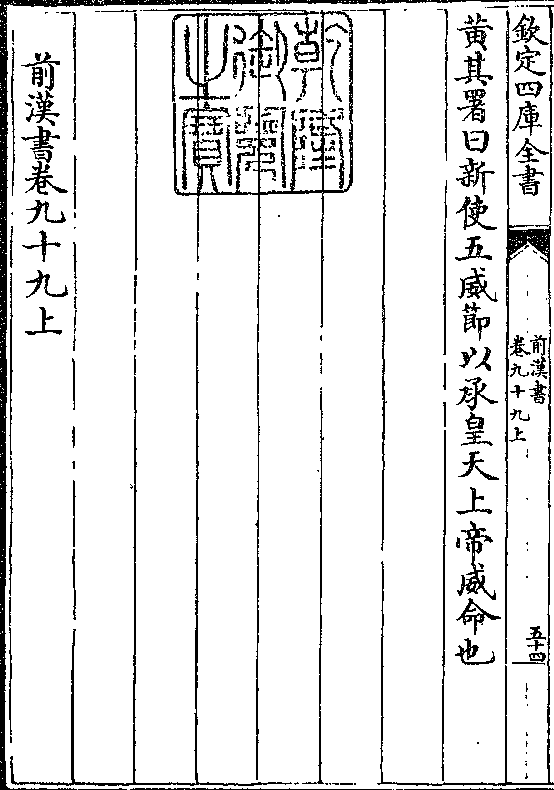 欽定四庫全書
前漢書
卷九十九上
五十四
黄其署曰新使五威節以承皇天上帝威命也
乾隆御覽之寶
前漢書卷九十九上